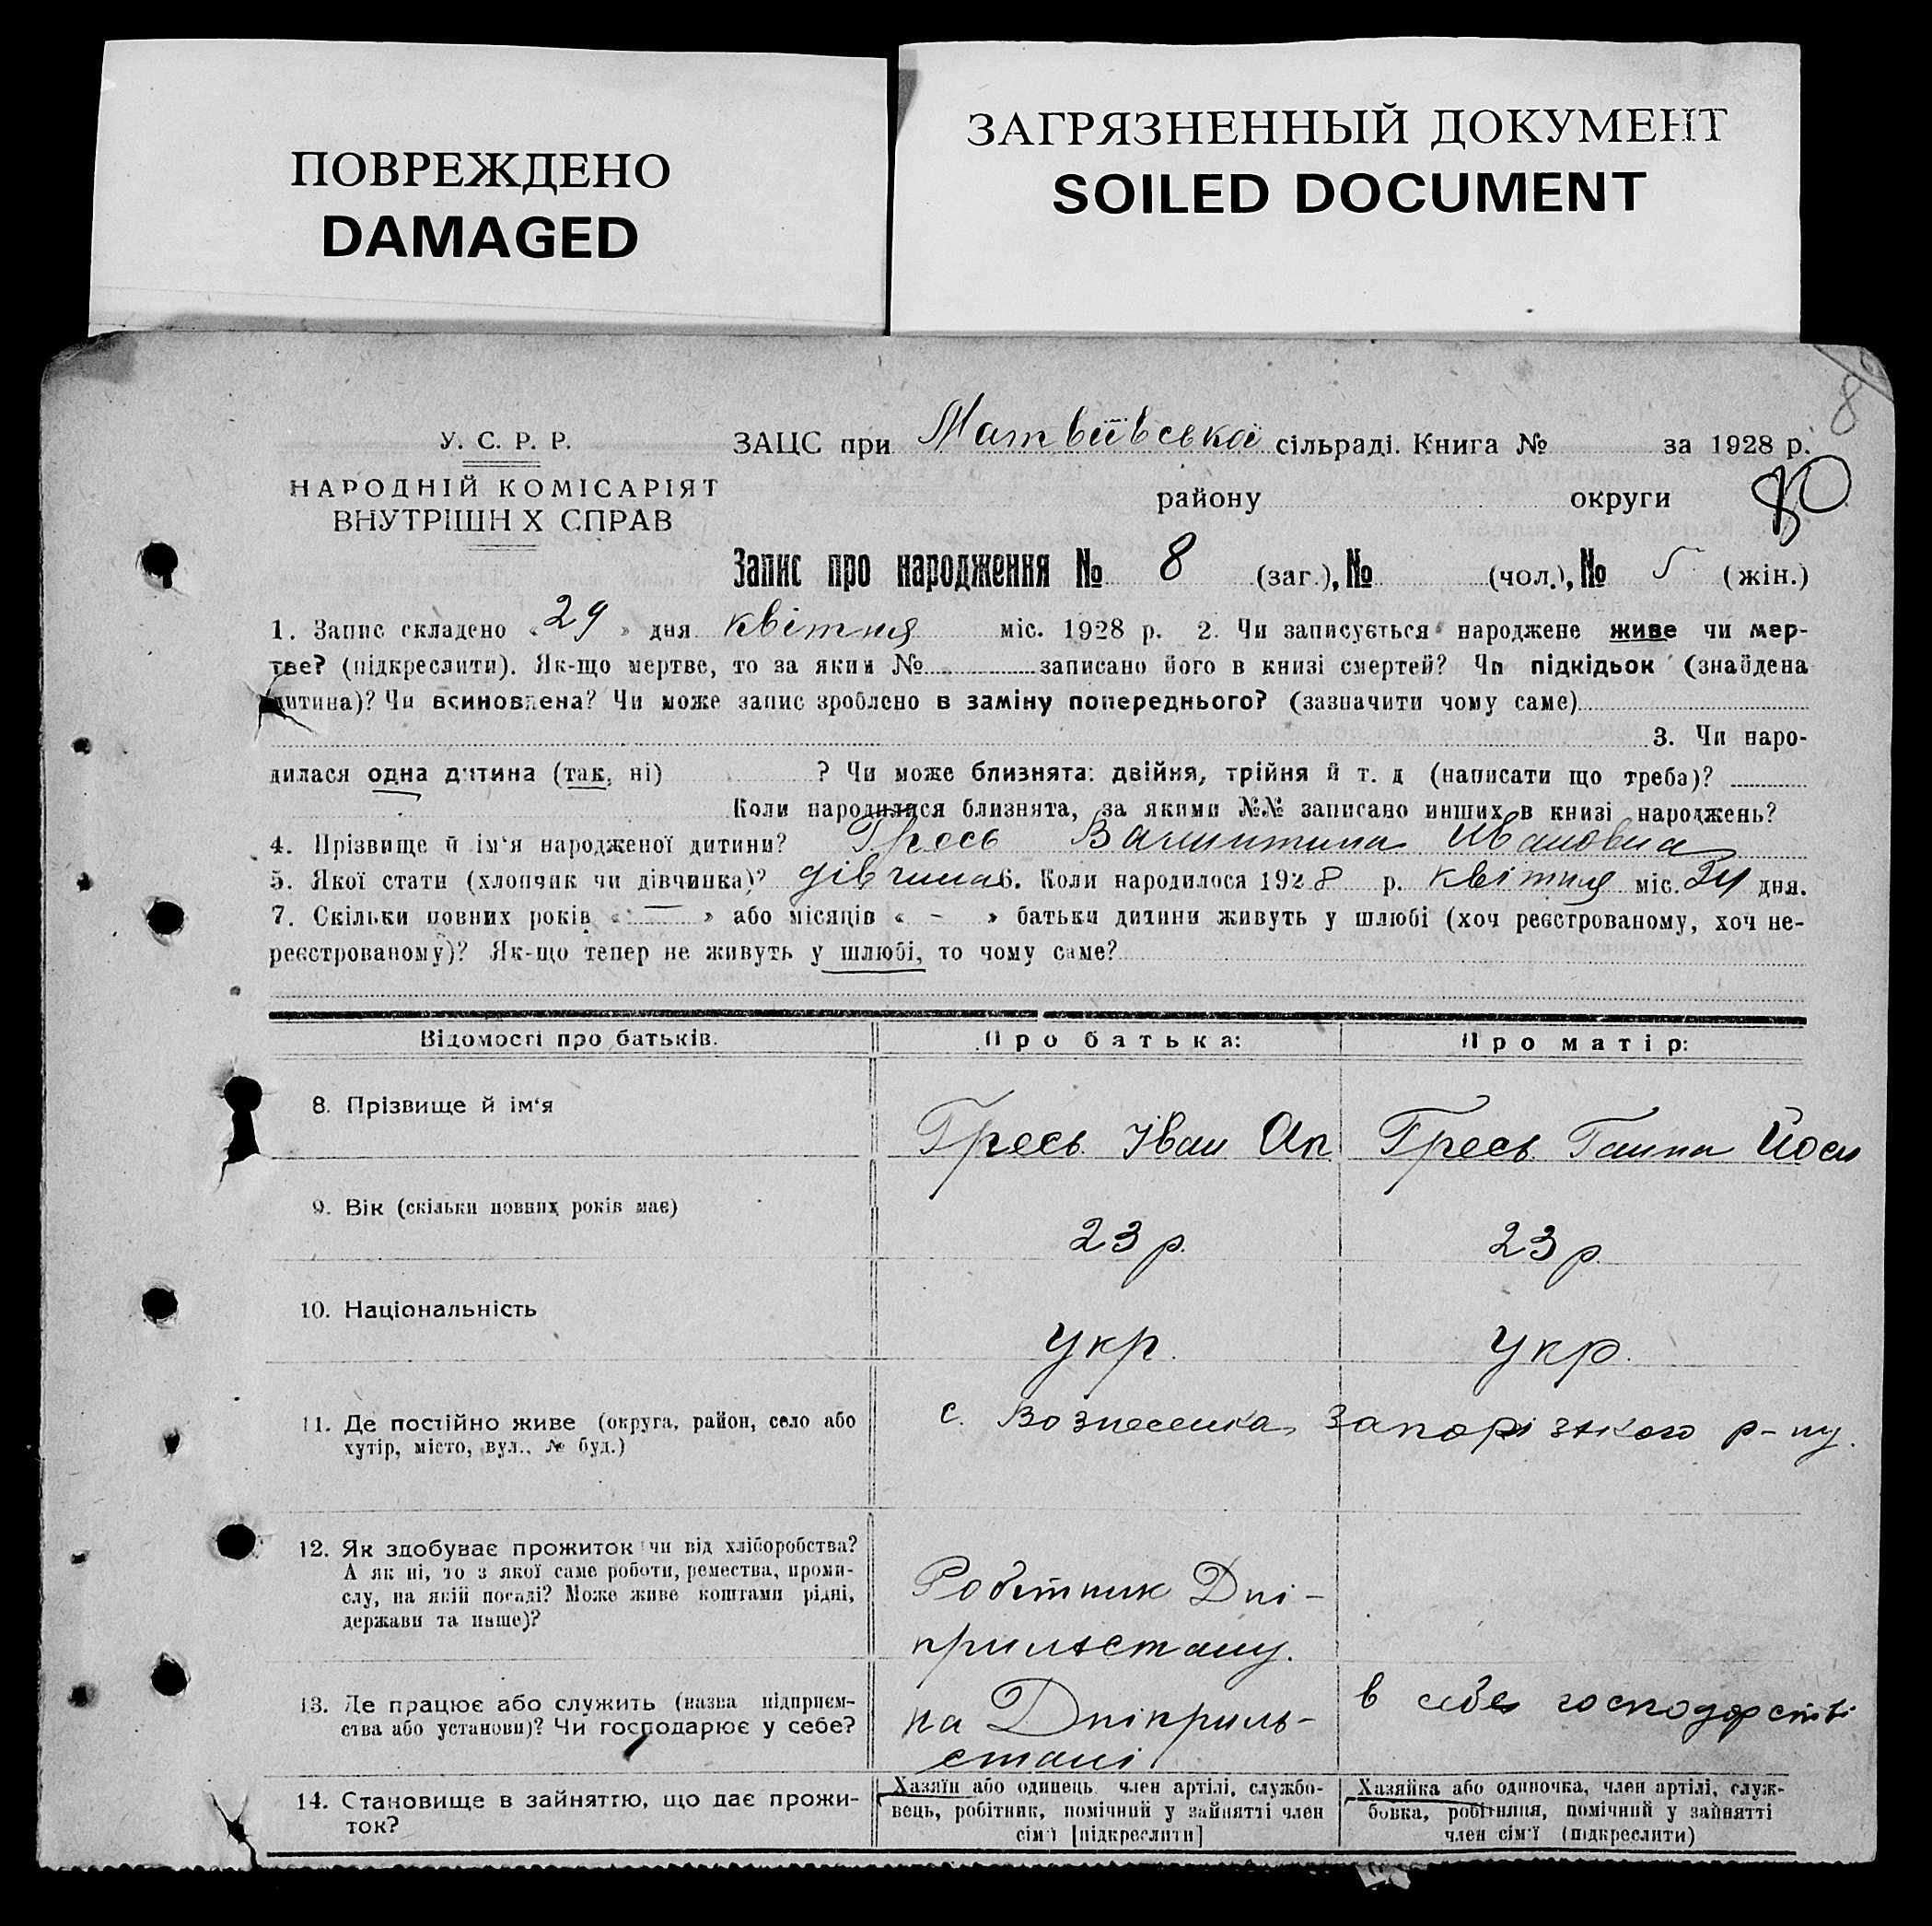 ПОВРЕЖДЕНО
DAMAGED
ЗАГРЯЗНЕННЫЙ ДОКУМЕНТ
SOILED DOCUMENT
У. С. Р. Р.
НАРОДНІЙ КОМІСАРІЯТ
ВНУТРІШН Х СПРАВ
ЗАЦС при Матвіївської сільраді. Книга № за 1928 р.
району округи 80
Запис про народження № 8 (заг.), № (чол.), № 5 (жін.)
1. Запис складено « 29 » дня квітня міс. 1928 р. 2. Чи записується народжене живе чи мер-
тве? (підкреслити). Як-що мертве, то за яким № записано його в книзі смертей? Чи підкідьок (знайдена
дитина)? Чи всиновлена? Чи може запис зроблено в заміну попереднього? (зазначити чому саме)
3. Чи наро-
дилася одна дитина (так, ні) ? Чи може близнята: двійня, трійня й т. д (написати що треба)?
Коли народилися близнята, за якими №№ записано инших в книзі народжень?
4. Прізвище й ім‘я народженої дитини? Гресь Валинтина Ивановна
5. Якої стати (хлопчик чи дівчинка)? дівчина 6. Коли народилося 1928 р. квітня міс. 24 дня.
7. Скільки повних років « — » або місяців « - » батьки дитини живуть у шлюбі (хоч реєстрованому, хоч не-
реєстрованому)? Як-що тепер не живуть у шлюбі, то чому саме?
Відомості про батьків. Про батька: Про матір:
8. Прізвище й ім‘я Гресь Іван Ап Гресь Ганна Йоси
9. Вік (скільки повних років має) 23 р. 23 р.
10. Національність Укр. Укр.
11. Де постійно живе (округа, район, село або
хутір, місто, вул., № буд.)
с. Вознесенка, Запорізького р-ну.
12. Як здобуває прожиток чи від хліборобства?
А як ні, то з якої саме роботи, ремества, проми-
слу, на якій посаді? Може живе коштами рідні,
держави та инше)?
Робітник Дні-
прильстану.
13. Де працює або служить (назва підприєм-
ства або установи)? Чи господарює у себе?
на Дніприль-
стані
в себе господарстві
14. Становище в зайняттю, що дає прожи-
ток?
Хазяїн або одинець член артілі, службо-
вець, робітник, помічний у зайнятті член
сім‘ї [підкреслити]
Хазяйка або одиночка, член артілі, служ-
бовка, робітниця, помічний у зайнятті
член сім‘ї (підкреслити)